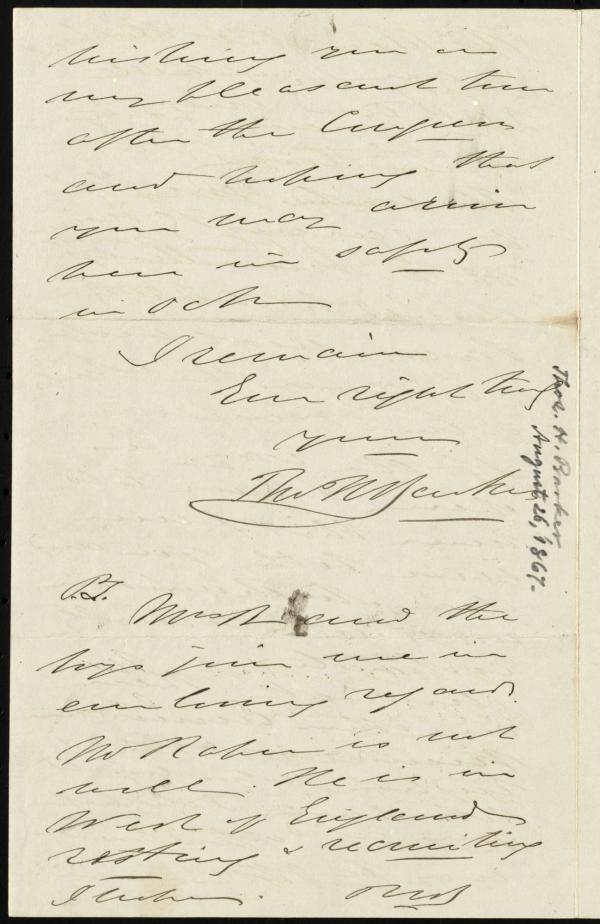 wishing you a
very pleasant time
after the Congress
and hoping that
you may arrive
here in safety
in Octr
I remain
Ever right truly
yours
Thos H Barker
P.S. Mrs B and the
boys join me in
ever loving regards.
Mr Raper is not
well. He is in
West of England
resting & recruiting
I
Thos. H. Barker
August 26, 1867.